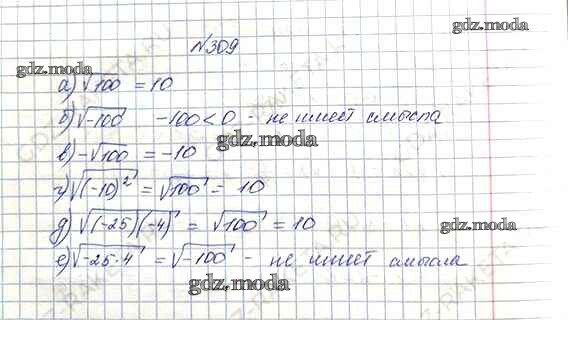 gdz.moda
№309
gdz.moda
а) √100 = 10
б) √-100 -100 < 0 - не имеет смысла
gdz.moda
gdz.moda
в) -√100 = -10
г) √(-10)² = √100 = 10
д) √(-25)(-4) = √100 = 10
gdz.moda
е) √-25·4 = √-100 - не имеет смысла
gdz.moda